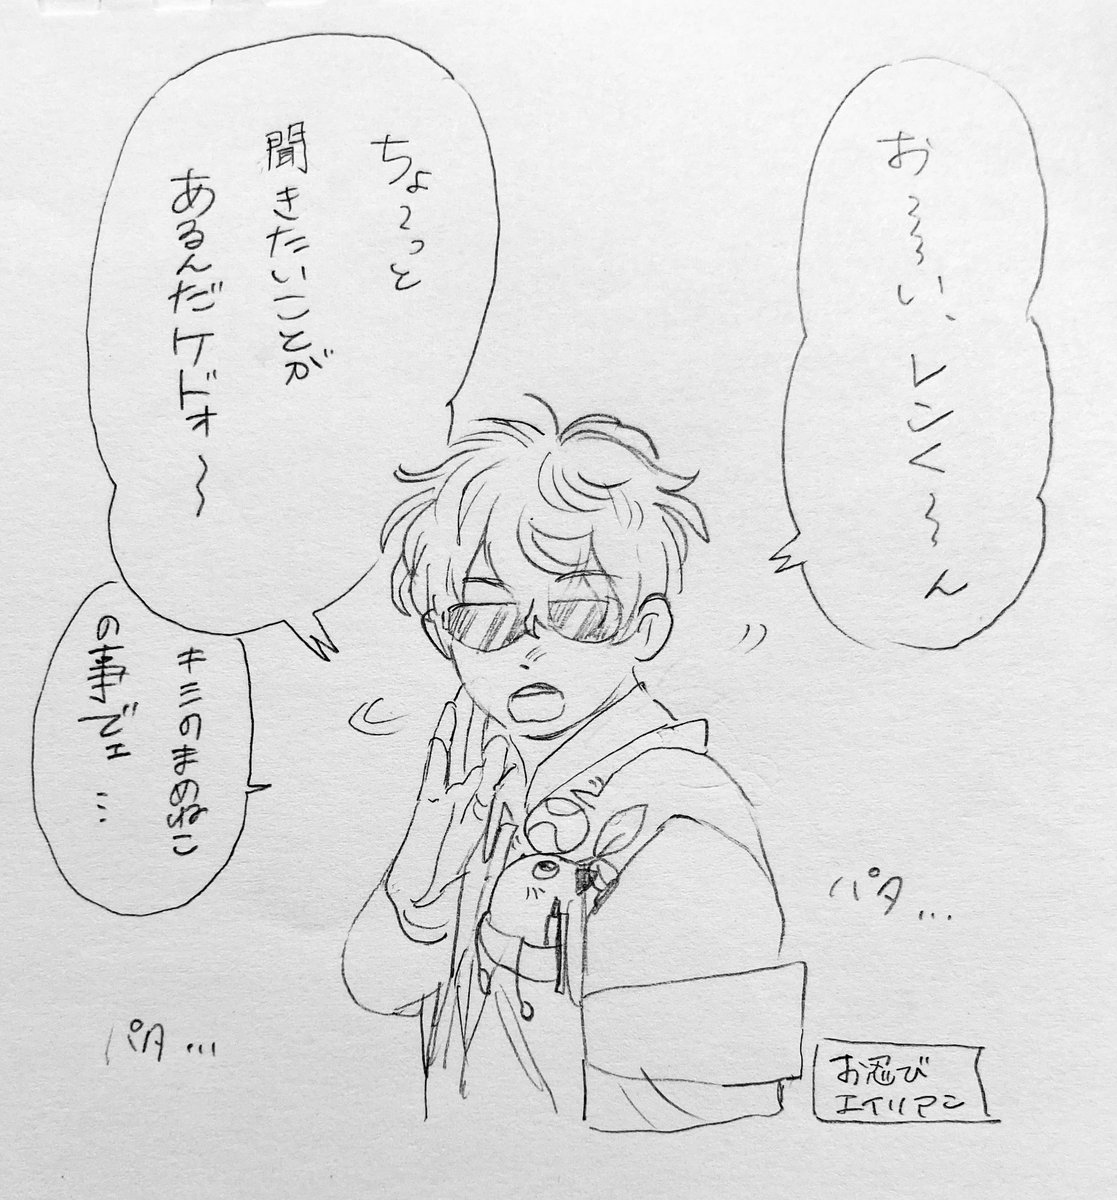 お～～い、レンく～～ん
ちょ～っと
聞きたいことが
あるんだケドォ～
キミのまめねこ
の事でェ…
パタ…
パタ…
お忍び
エイリアン